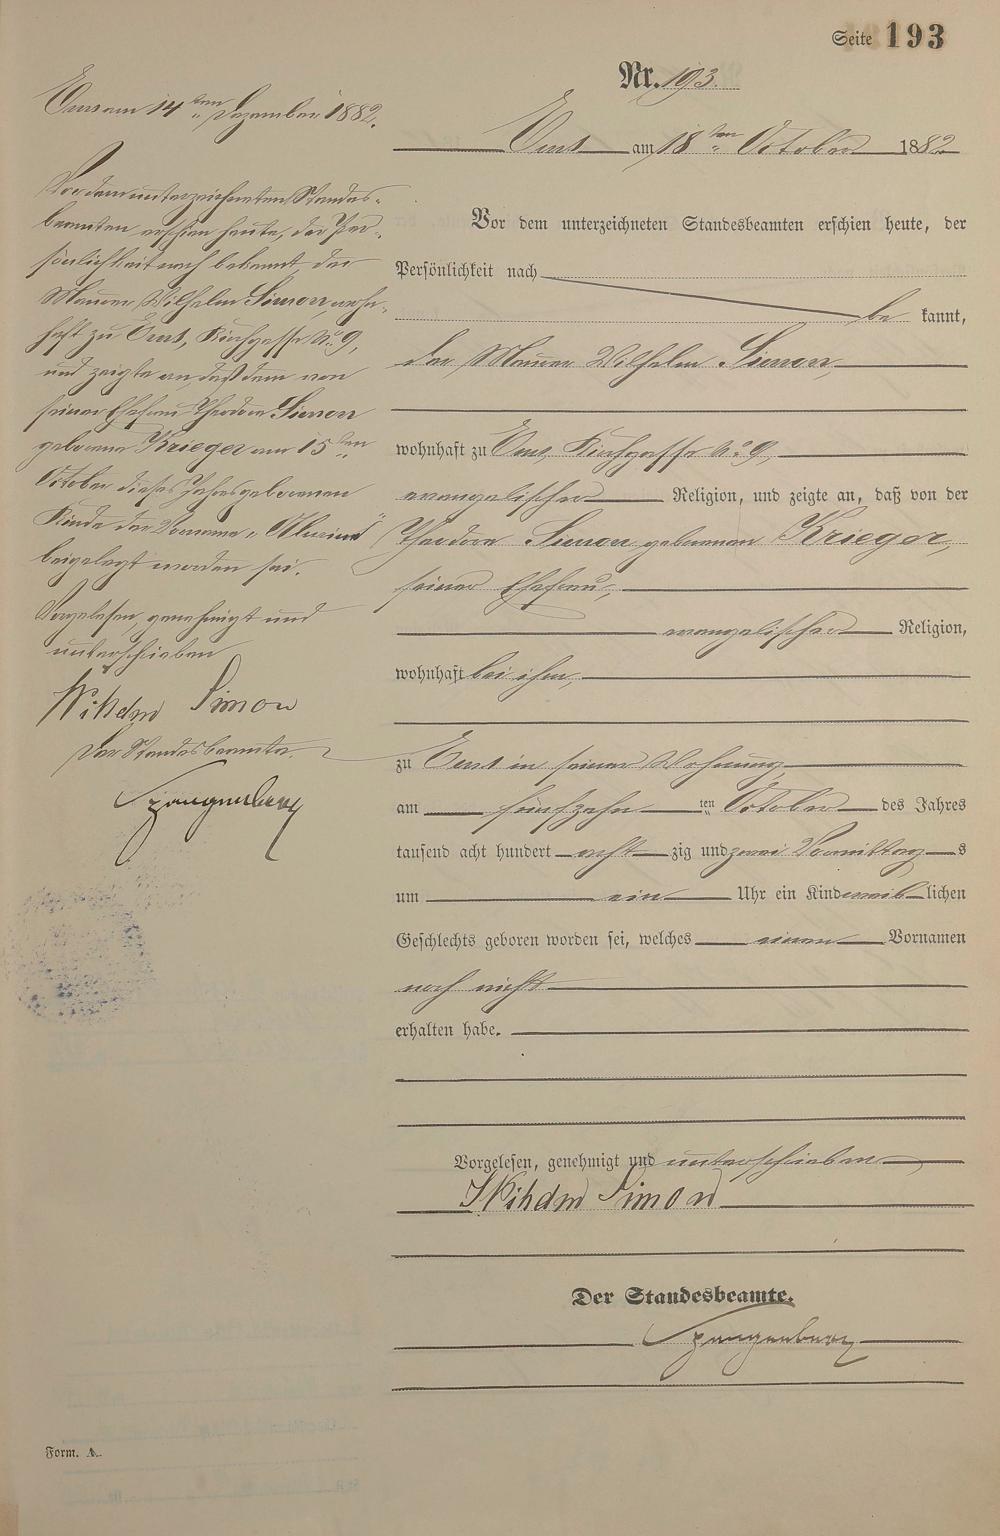 Seite 193
Nr. 193.
Ems am 18ten October 1882
Vor dem unterzeichneten Standesbeamten erschien heute, der
Persönlichkeit nach
bekannt,
der Maurer Wilhelm Simon,
wohnhaft zu Ems, Kirchgasse No 9,
evangelischer Religion, und zeigte an, daß von der
Theodore Simon geborenen Krieger,
seiner Ehefrau,
evangelischer Religion,
wohnhaft bei ihm,
zu Ems in seiner Wohnung
am fünfzehnten October des Jahres
tausend acht hundert achtzig und zwei Vormittags
um ein Uhr ein Kind weiblichen
Geschlechts geboren worden sei, welches einen Vornamen
noch nicht
erhalten habe.
Vorgelesen, genehmigt und unterschrieben
Wilhelm Simon
Der Standesbeamte.
Spangenberg
Ems am 14ten Dezember 1882.
Vor dem unterzeichneten Standes-
beamten erschien heute, der Per-
sönlichkeit nach bekannt, der
Maurer Wilhelm Simon, wohn-
haft zu Ems, Kirchgasse No 9,
und zeigte an daß dem von
seiner Ehefrau Theodore Simon
geborene Krieger am 15ten
October dieses Jahres geborenen
Kinde der Vorname
beigelegt worden sei.
Vorgelesen, genehmigt und
unterschrieben
Wilhelm Simon
Der Standesbeamte
Spangenberg
Form. A.